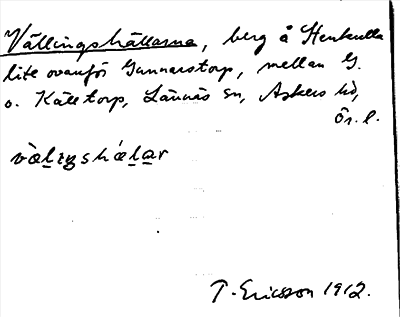 Vällingshällarna, berg å Stenkulla
lite ovanför Gunnarstorp, mellan G.
o. Källtorp, Lännäs sn, Askers hd,
Ör. l.
vä̀l̲ıŋshæ̀l̲a̲r
T. Ericsson 1912.